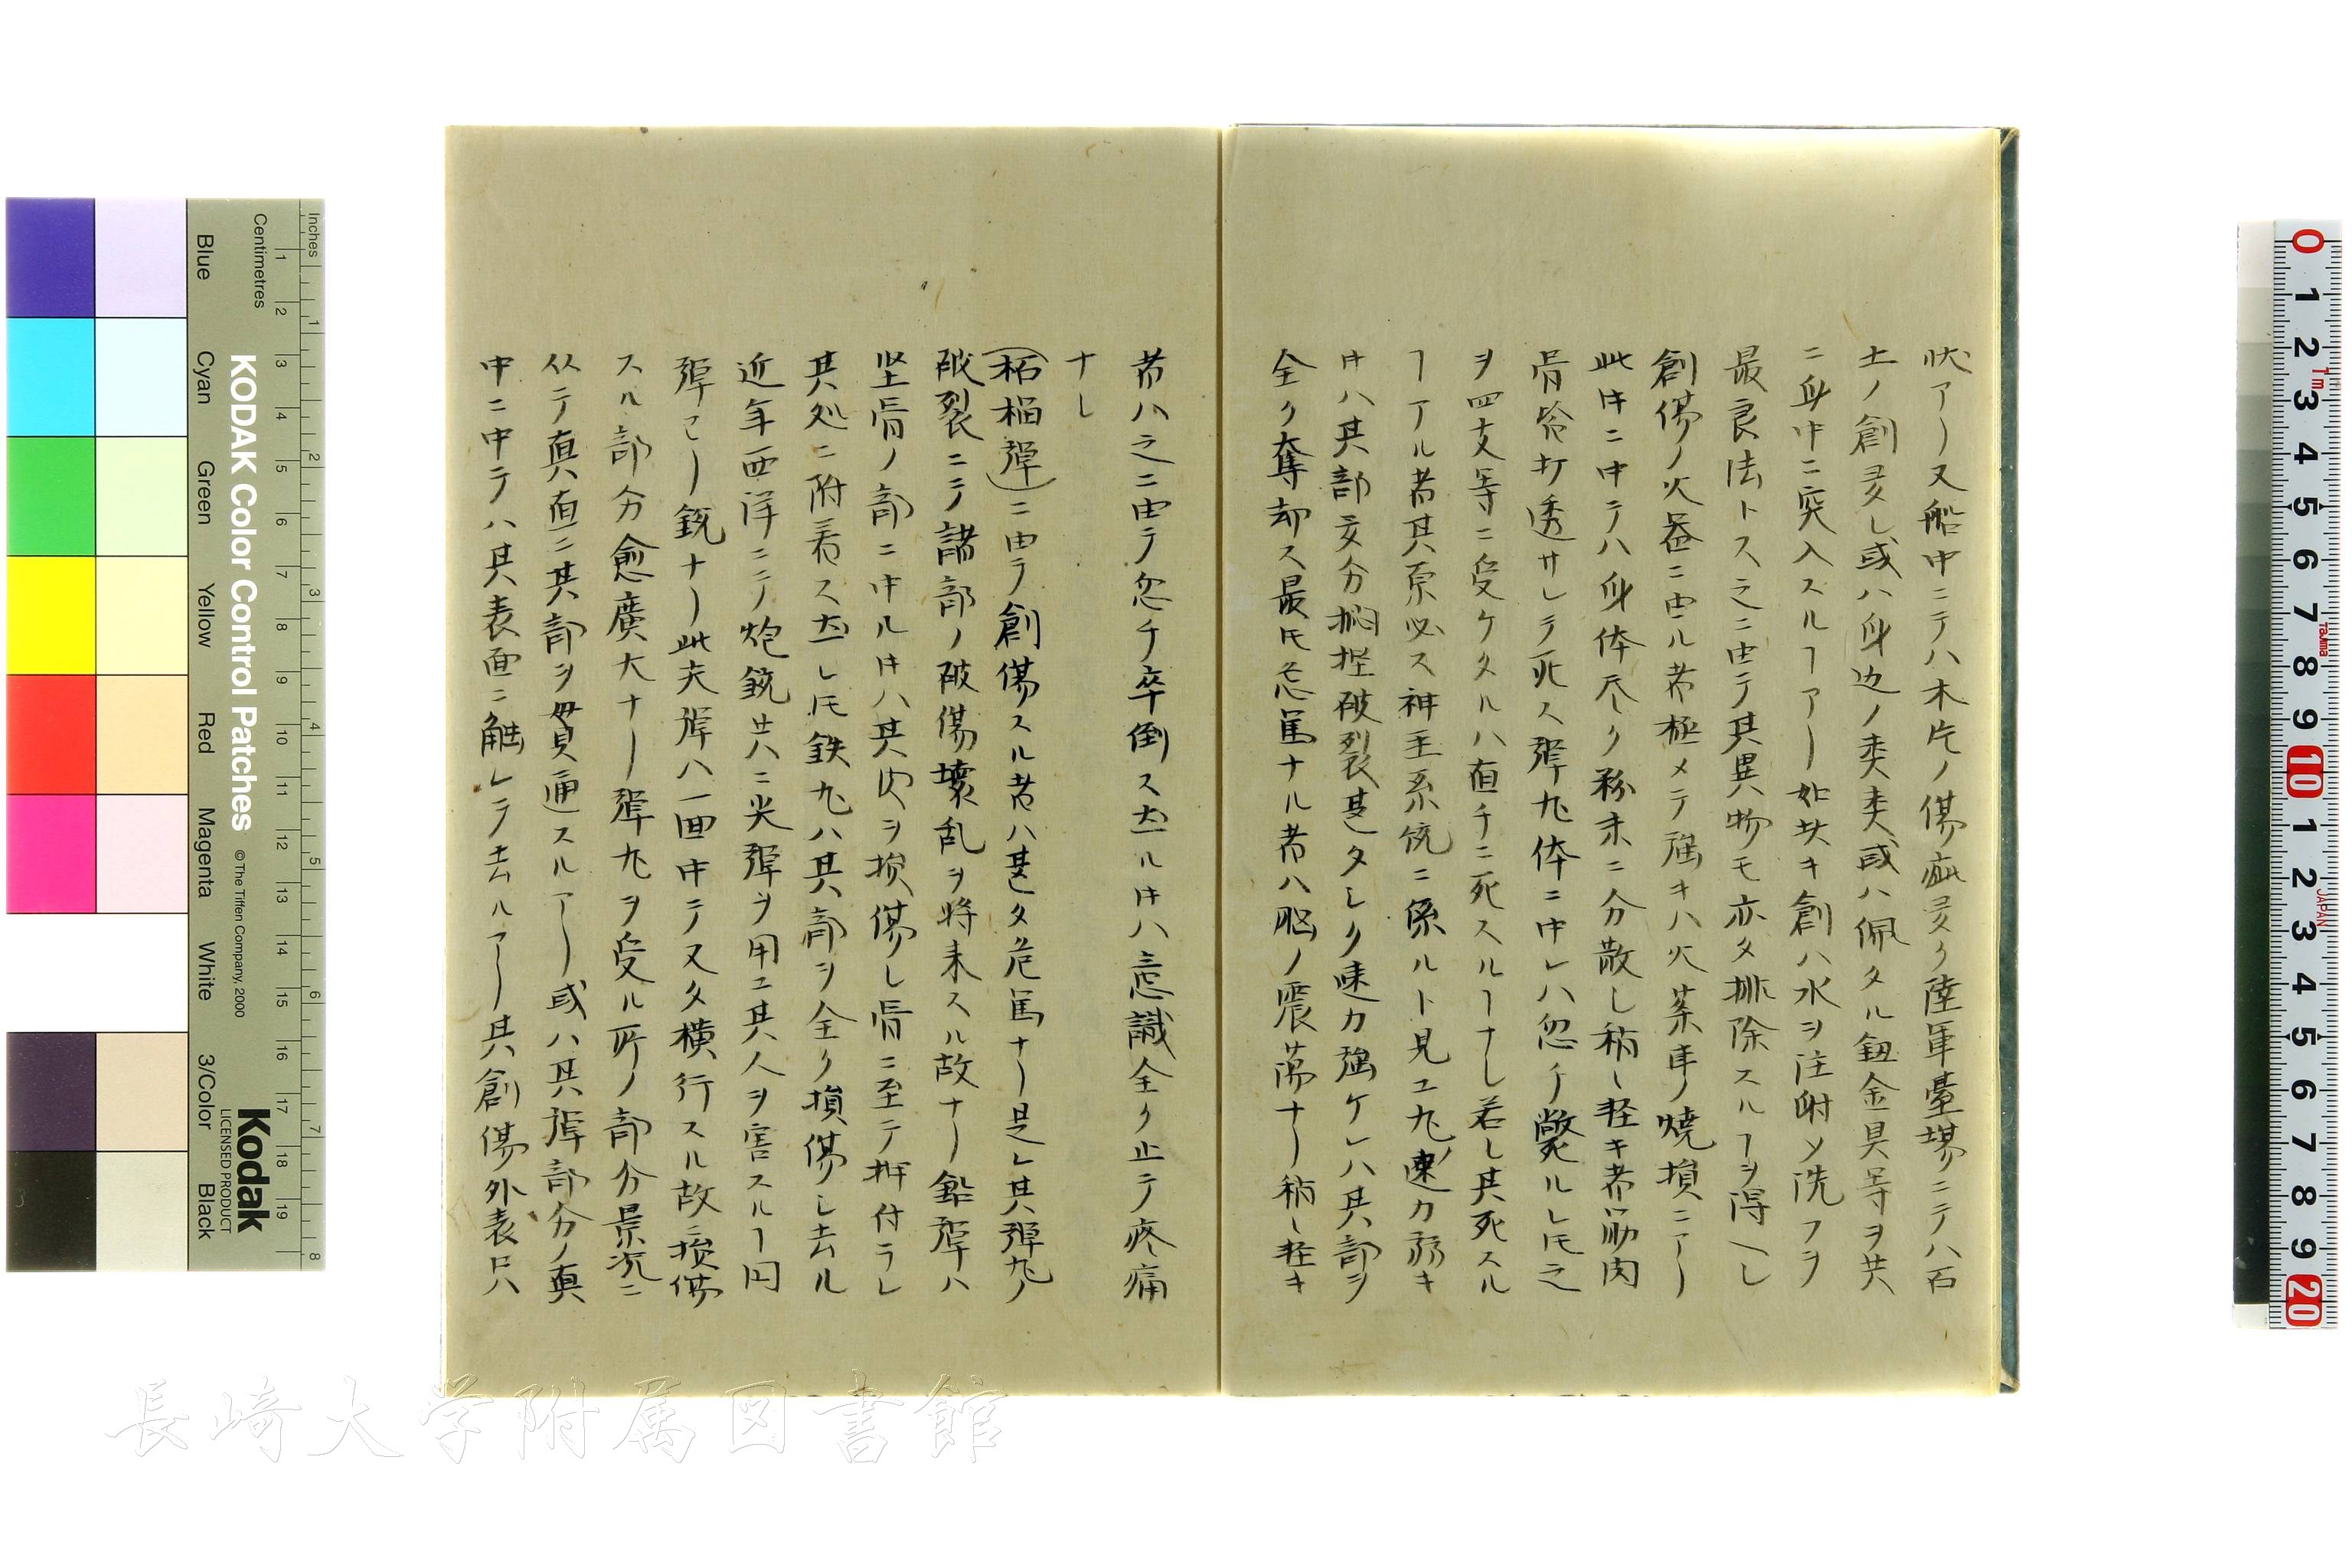 状アリ又船中ニテハ木片ノ傷瘢多ク陸軍臺場ニテハ石
土ノ創多シ或ハ身辺ノ囊类或ハ佩タル鈕金具等ヲ共
ニ身中ニ突入スルヿアリ如此キ創ハ水ヲ注射メ洗フヲ
最良法トス之ニ由テ其異物モ亦タ排除スルヿヲ得ヘシ
創傷ノ火器ニ由ル者極メテ強キハ火藥庫ノ焼損ニアリ
此时ニ中テハ身体尽ク粉末ニ分散し稍〻軽キ者筋肉
骨骼打透サレテ死ス弾丸体ニ中レハ忽チ斃ルレ𪜈之
ヲ四支等ニ受ケタルハ直チニ死スルヿナし若し其死スル
ヿアル者其原必ス神圣系統ニ係ルト見エ丸ノ速力弱キ
时ハ其部支分挫破裂甚タシク速力強ケレハ其部ヲ
全ク奪却ス最𪜈危篤ナル者ハ脳ノ震荡ナリ稍〻軽キ
者ハ之ニ由テ忽チ卒倒ス㐂ルメハ意識全ク止テ疼痛
ナし
(柘榴弾)ニ由テ創傷スル者ハ甚タ危篤ナリ是レ其弾丸ノ
破裂ニテ諸部ノ破傷壞乱ヲ将来スル故ナリ鉛弾ハ
坚骨ノ部ニ中ル时ハ其肉ヲ損傷し骨ニ至テ押付ラレ
其処ニ附着ス㐂レ𪜈鉄丸ハ其部ヲ全ク損傷し去ル
近年西洋ニテ炮銃共ニ尖弾ヲ用エ其人ヲ害スルヿ円
弾ヨリ鋭ナリ此夫弾ハ一回中テ又タ横行スル故ニ損傷
スル部分愈廣大ナリ弾丸ヲ受ル所ノ部分景況ニ
从テ真直ニ其部ヲ貫通スルアリ或ハ其弾部分ノ真
中ニ中テハ其表面ニ觸レテ去ルアリ其創傷外表只ハ
KODAK Color Control Patches
© The Tiffen Company, 2000
Kodak
LICENSED PRODUCT
Inches
Centimetres
Blue
Cyan
Green
Yellow
Red
Magenta
White
3/Color
Black
長崎大学附属図書館